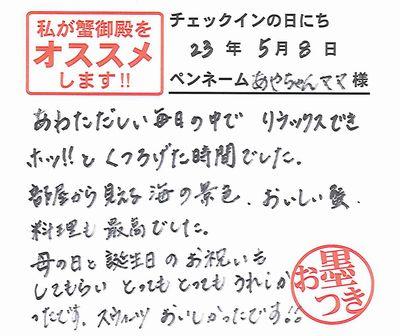 私が蟹御殿を
オススメ
します!!
チェックインの日にち
23年5月8日
ペンネームあやちゃんママ様
あわただしい毎日の中で リラックスでき
ホッ!!と くつろげた時間でした。
部屋から見える海の景色、おいしい蟹、
料理も最高でした。
母の日と誕生日のお祝いも
してもらい とっても とっても うれしか
ったです。スウィーツ おいしかったです!!
墨
おつき